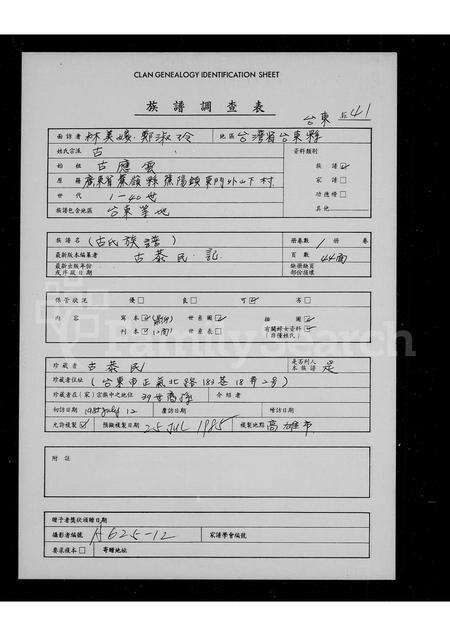 CLAN GENEALOGY IDENTIFICATION SHEET
族譜調查表
台東 丘41
面訪者 林美媛.鄭淑玲 地區 台灣省台東縣
姓氏宗派 古 資料類別
始祖 古應雲 族譜☑
原籍 廣東省蕉嶺縣蕉陽鎮東門外山下村 家譜□
世代 1-40世 功德榜□
族譜包含地區 台東等地 其他
族譜名 (古氏族譜) 冊卷數 1 冊 卷
最新版本編纂者 古恭民.記 頁數 44面
最新出版年份或序跋日期 缺冊缺頁部份損壞
保管狀況 優□ 良□ 可☑ 劣□
內容 寫本☑ 世系圖☑ 插圖☑
刊本☑ 世系表□ 有關婦女資料☑
(非僅姓氏)
珍藏者 古恭民 是否列入本族譜 是
珍藏者住址 (台東市正氣北路183巷18弄2号)
珍藏者在(家)宗族中之地位 39世裔孫 介紹者
初訪日期 1985 July 12 覆訪日期 贈訪日期
允許複製☑ 預擬複製日期 25 JUL 1985 複製地點 高雄市
附註
贈予者獎狀頒贈日期
攝影者編號 A625-12 家譜學會編號
要求複本□ 寄贈地址
FamilySearch